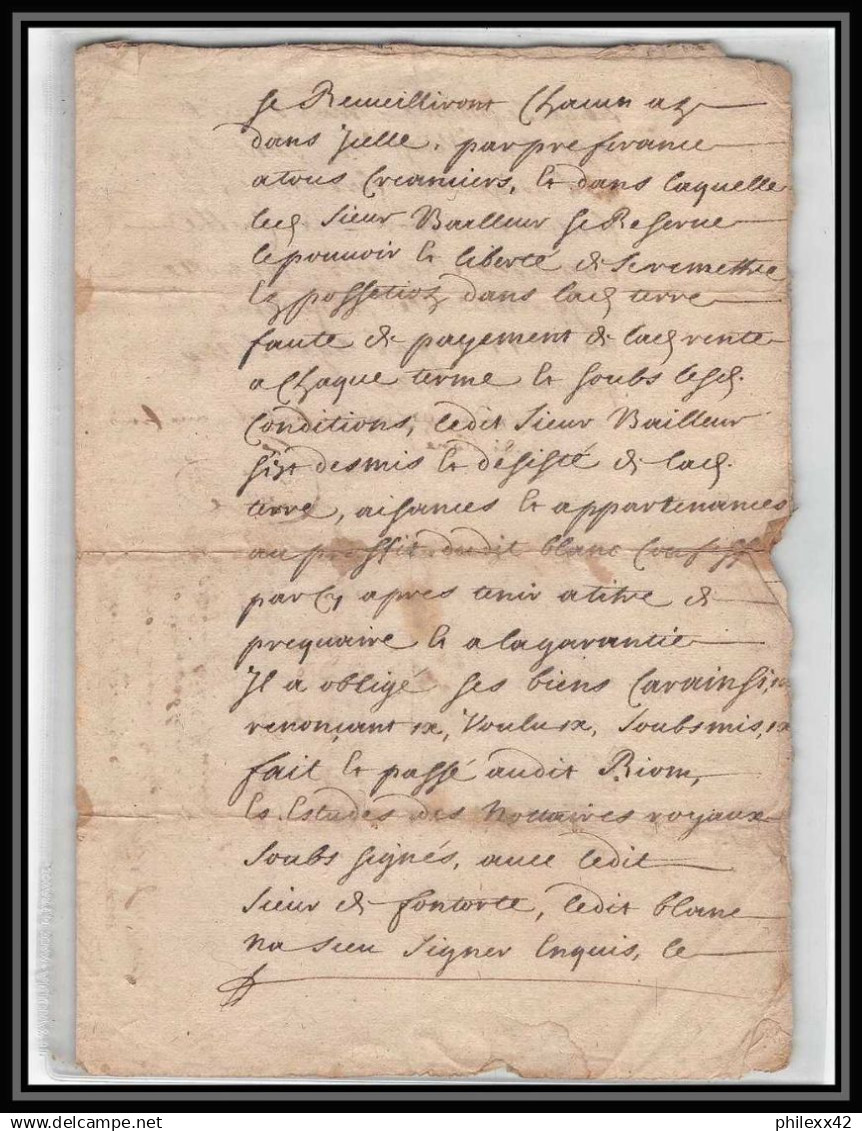 se Recueilliront Chacun an
dans Jcelle, par preferance
atous Creanciers, Et dans laquelle
led Sieur Bailleur se Reserve
le pouvoir Et liberté de se remettre
En possetion dans lad terre
faute de payement de lad rente
a Chaque terme Et soubs lesd.
Conditions, ledit Sieur Bailleur
sest desmis Et désisté de lad.
terre, aisances Et appartenances
au proffit dudit blanc
par Cy apres tenir atitre de
prequaire Et a lagarantie
Il a obligé ses biens Carainsi,
renonçant &a, Voulu &a, Soubsmis, &a
fait Et passé audit Riom,
Es Estudes des Nottaires royaux
Soubs signés, avec ledit
Sieur de fontorte, ledit blanc
na sceu signer Enquis, le
philexx42